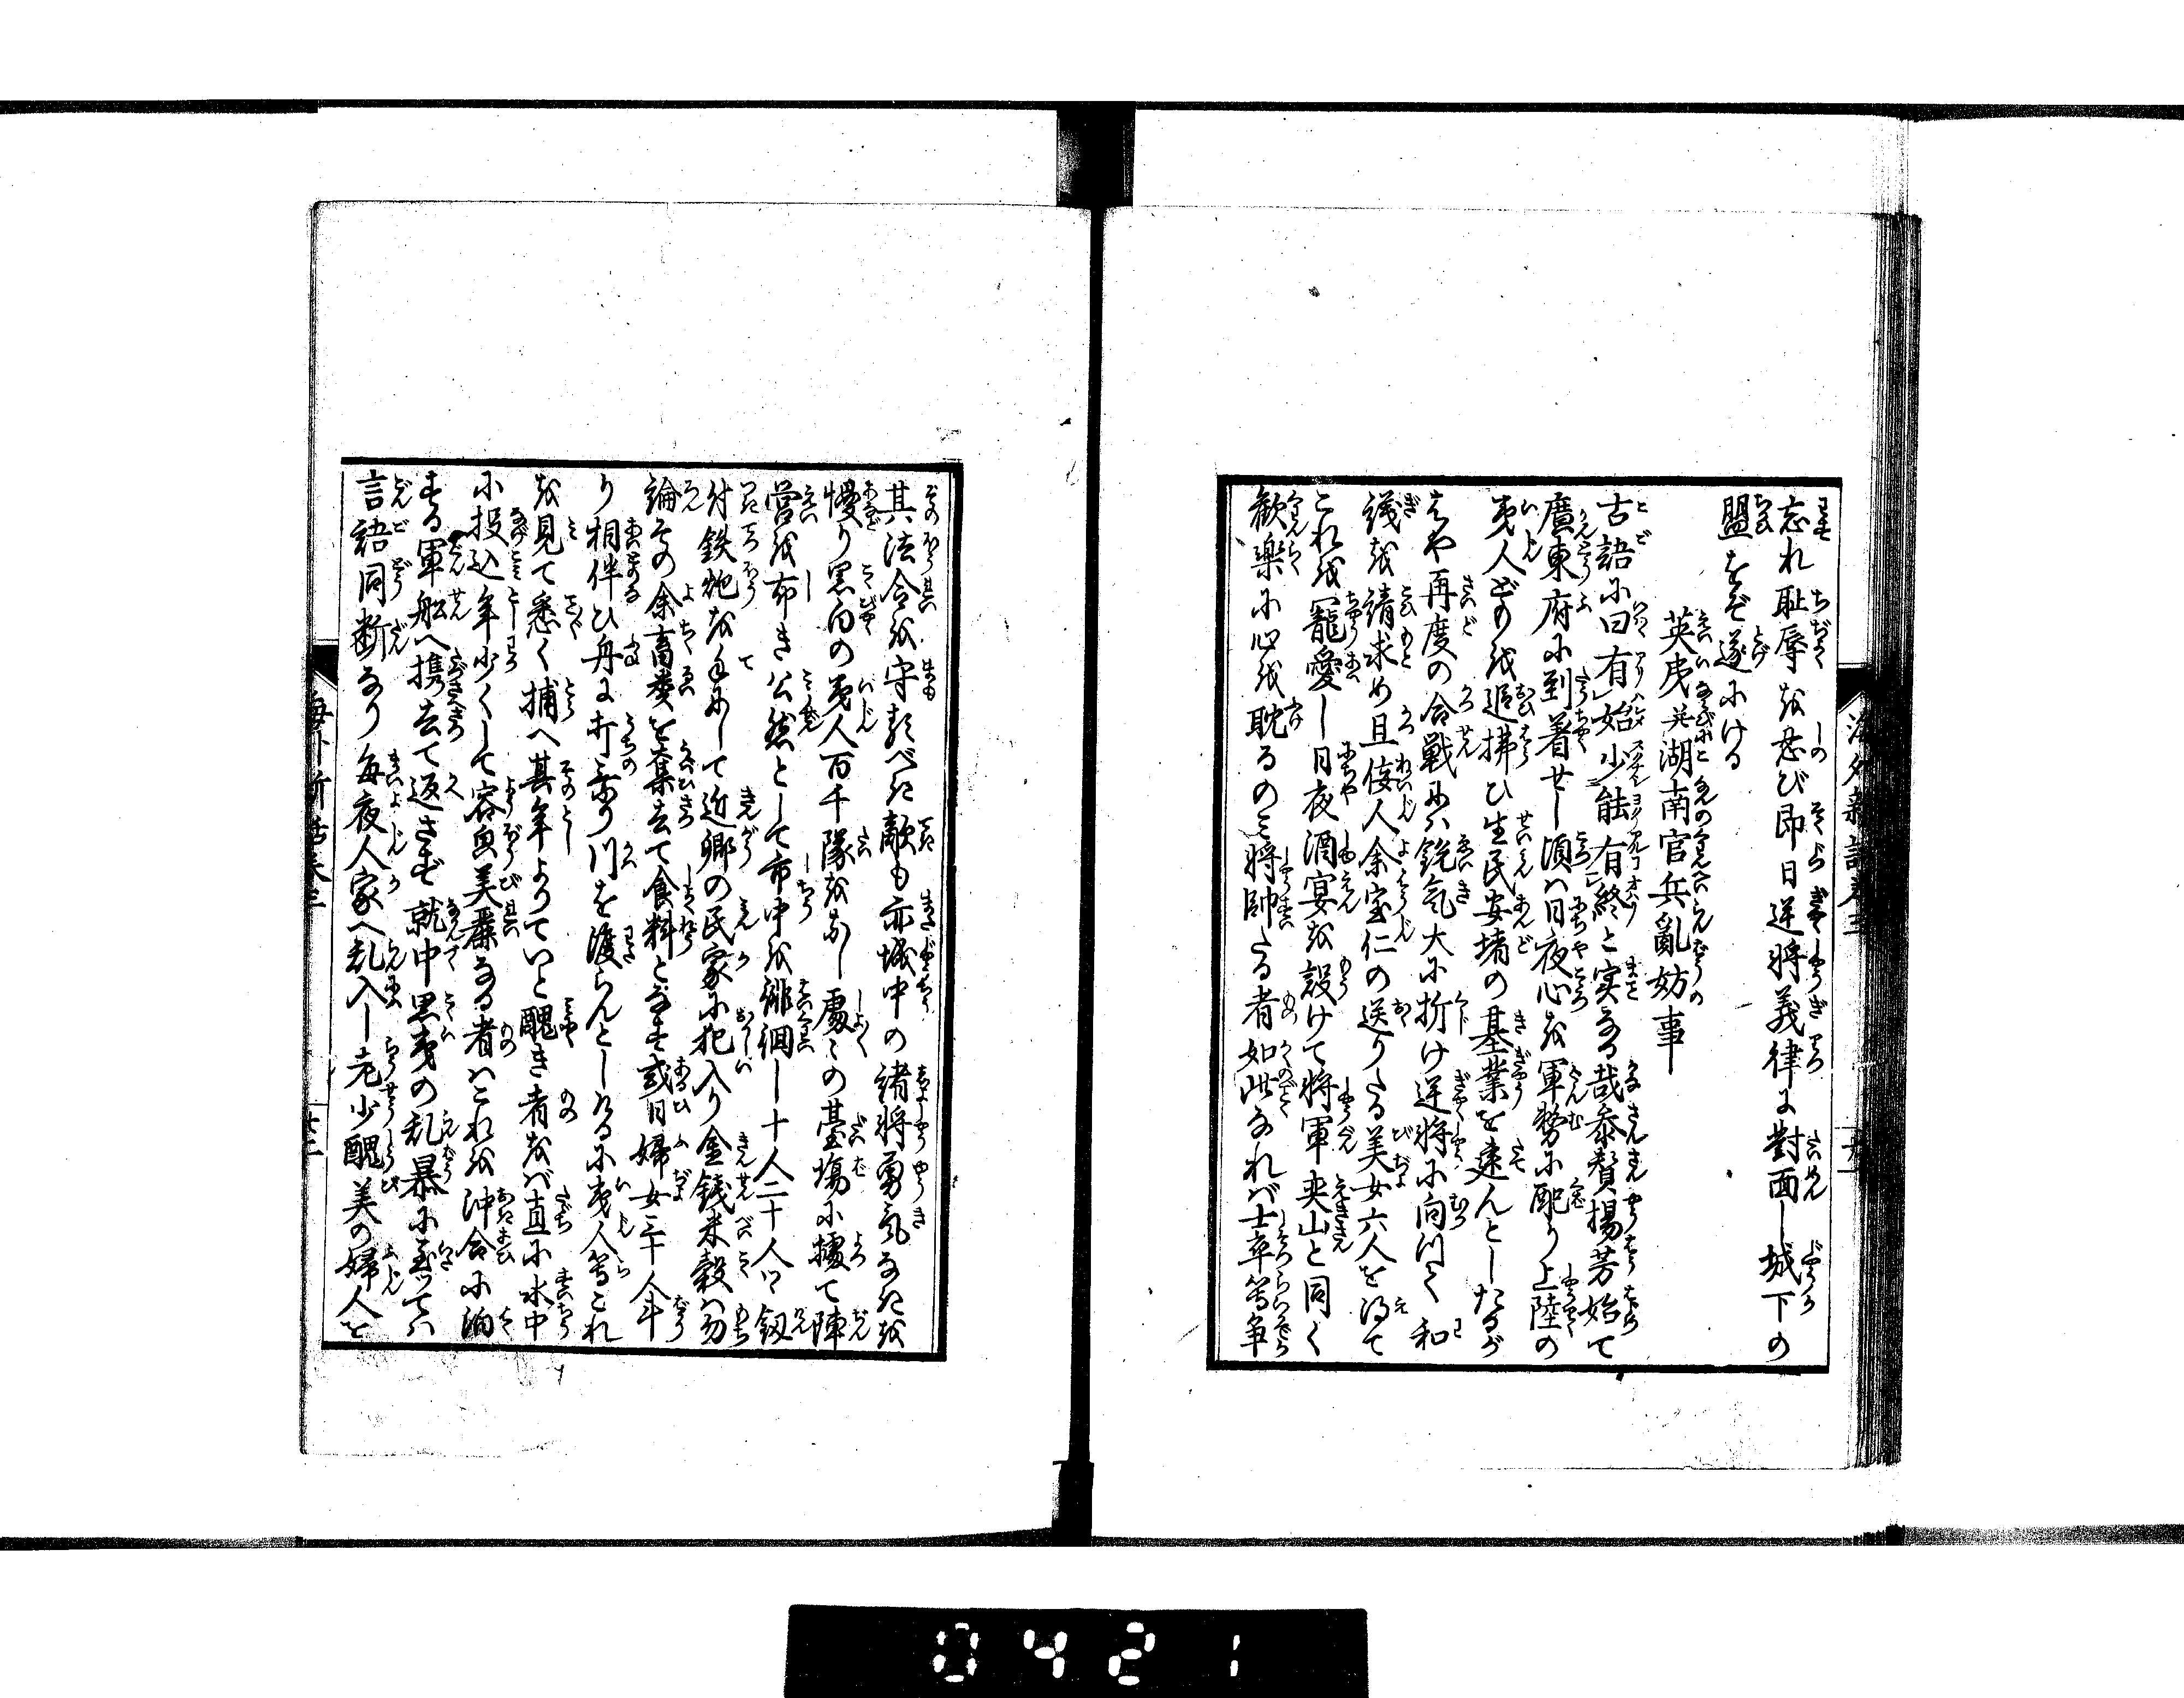 忘れ恥辱を忍び即日逆将義律に對面し城下の
盟をぞ遂にける
英夷并湖南官兵亂妨事
古語に曰有始少能有終と実なる哉参賛揚芳始て
廣東府に到着せし頃は日夜心を軍務に配り上陸の
夷人どもを追拂ひ生民安堵の基業を建んとしたるが
はや再度の合戦に鋭気大に折け逆将に向けて和
議を請求め且佞人余宝仁の送りたる美女六人を得て
これを寵愛し日夜酒宴を設けて将軍奕山と同く
歓楽に心を耽るのミ将帥たる者如此なれバ士卒等争
其法令を守るべき敵も亦城中の諸将勇気なきを
慢り黒白の夷人百千隊をなし處々の臺場に據て陣
営を布き公然として市中を徘徊し十人二十人ツヽ釼
付鉄炮を手にして近郷の民家に犯入り金銭米穀は勿
論その余畜類を奪去て食料となす或日婦女三十人斗
り相伴ひ舟に打乗り川を渡らんとしけるに夷人等これ
を見て悉く捕へ其年よりていと醜き者をバ直に水中
に投込年少くして容皃美麗なる者はこれを沖合に泊
する軍舩へ携去て返さず就中黒夷の乱暴に至ってハ
言語同断なり毎夜人家へ乱入し老少醜美の婦人を
海外新話巻三
海外新話巻三
0421